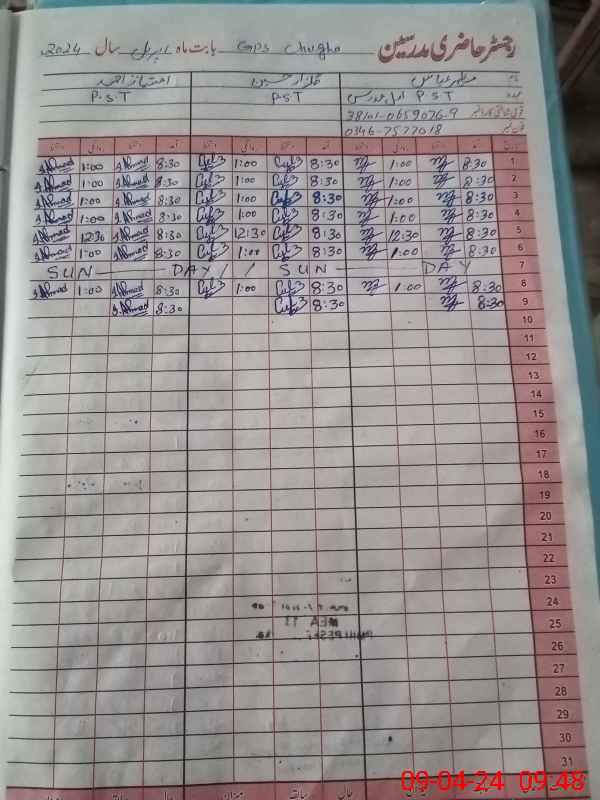 رجسٹر حاضری مدرسین GGPS Chugha بابت ماہ اپریل سال 2024
نام مظہر عباس گلزار حسین امتیاز احمد
عہدہ PST اول مدرس P.S.T P.S.T
38101-0659076-9
0346-7577018
1 8:30 1:00 8:30 1:00 8:30 1:00
2 8:30 1:00 8:30 1:00 8:30 1:00
3 8:30 1:00 8:30 1:00 8:30 1:00
4 8:30 1:00 8:30 1:00 8:30 1:00
5 8:30 12:30 8:30 12:30 8:30 12:30
6 8:30 1:00 8:30 1:00 8:30 1:00
SUN DAY // SUN DAY 7
8 8:30 1:00 8:30 1:00 8:30 1:00
9 8:30 8:30 8:30
10
11
12
13
14
15
16
17
18
19
20
21
22
23
24
25
26
27
28
29
30
31
09-04-24 09:48